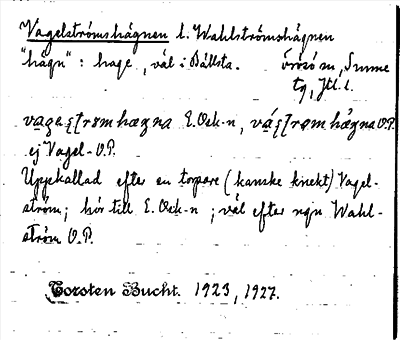 Vagelströmshägnen l. Wahlströmshägnen
"hägn": hage, väl i Bällsta.
tg, Jtl. l.
E. Oek-n, O.P.
ej Vagel- O.P.
Uppkallad efter en torpare (kanske knekt) Vagel-
ström; hör till E. Oek-n; väl efter ngn Wahl-
ström O.P.
Torsten Bucht. 1923, 1927.